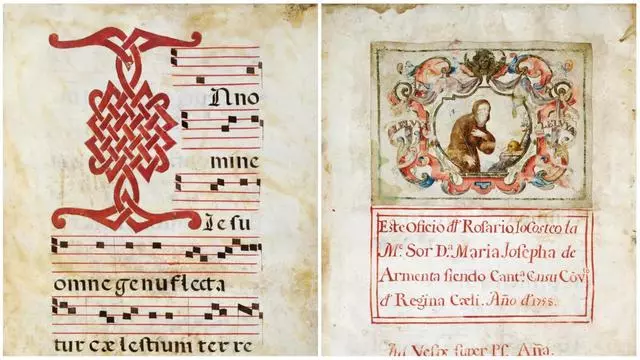 INno
mine
Iesu
omne genuflecta
tur cælestium terre
Este Oficio dl Rosario lo costeo la
Me. Sor Da. Maria Josepha de
Armenta siendo Canta. En su Côvto
d Regina Cæli. Año d 1755.
super Ps. Aña.